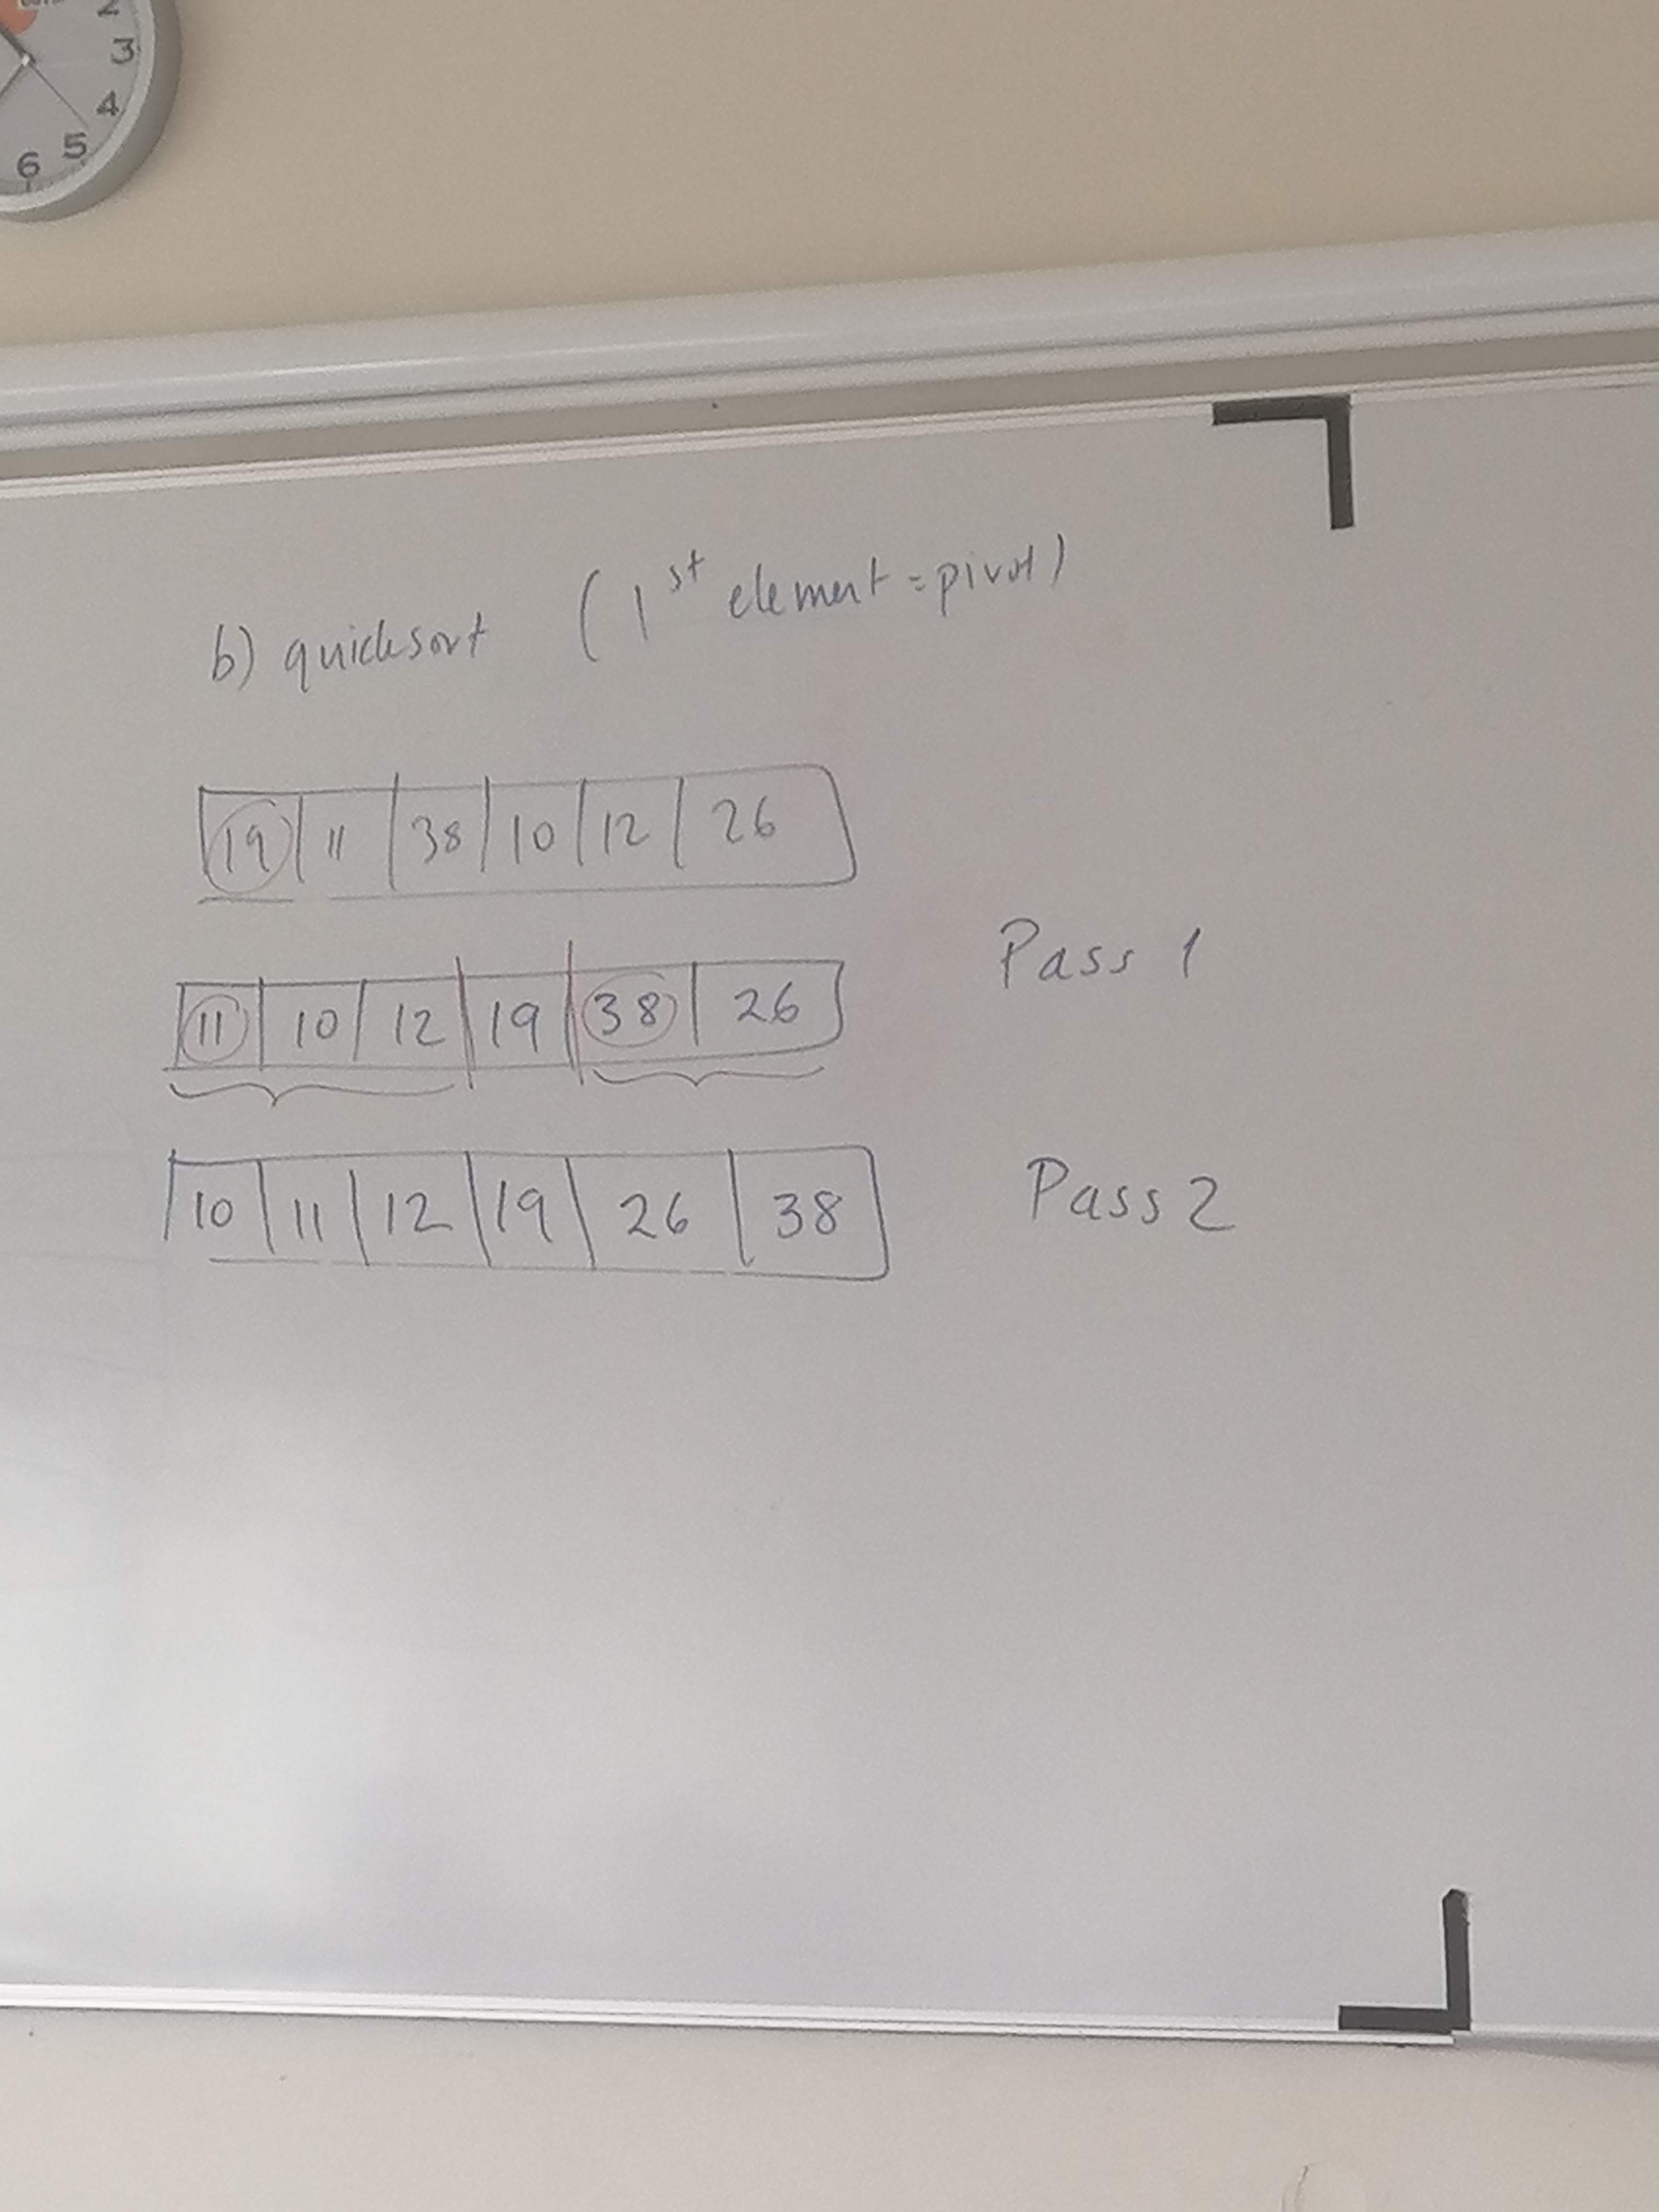 2
3
4
5
6
b) quicksort (1st element = pivot)
19 11 38 10 12 26
11 10 12 19 38 26 Pass 1
10 11 12 19 26 38 Pass 2